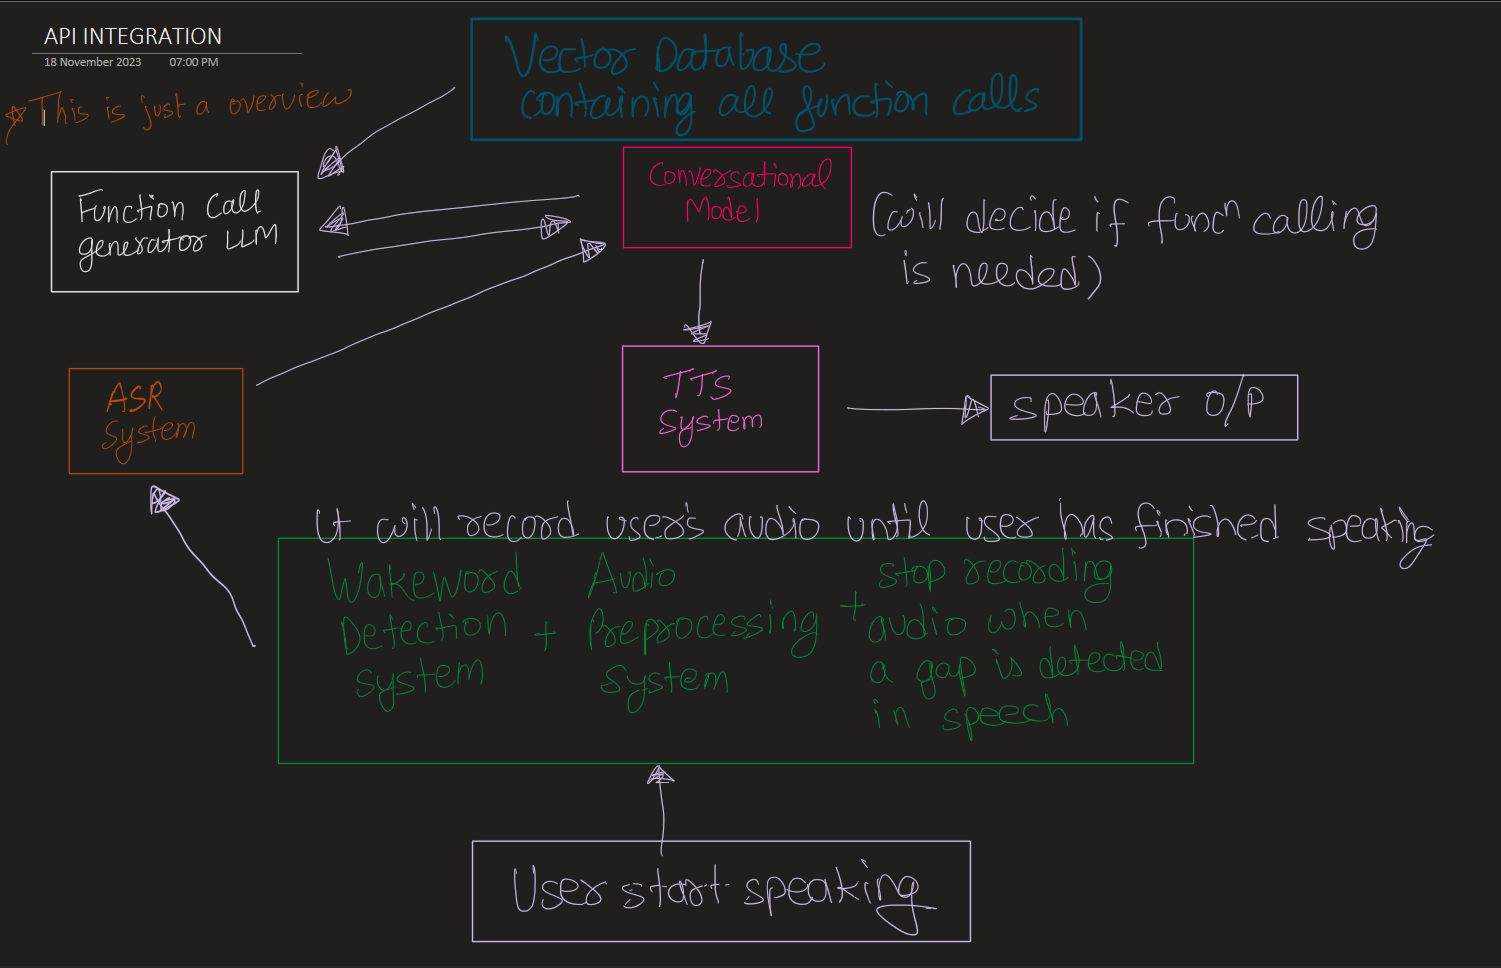 API INTEGRATION
18 November 2023 07:00 PM
☆ This is just a overview
Vector Database
containing all function calls
Function Call
generator LLM
Conversational
Model
(will decide if funcⁿ calling
is needed)
ASR
System
TTS
System
speaker O/P
It will record user's audio until user has finished speaking
Wakeword
Detection
system
+
Audio
Preprocessing
system
+
stop recording
audio when
a gap is detected
in speech
User start speaking